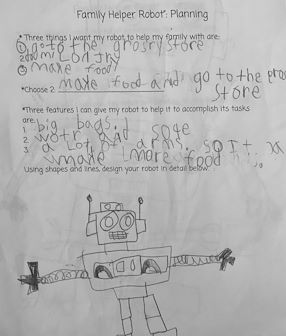 Family Helper Robot: Planning
*Three things I want my robot to help my family with are:
① go to the grosry store
② do mi Londry
③ make food
*Choose 2 make food and go to the
store
*Three features I can give my robot to help it to accomplish its tasks
are:
1 big bags.
2 wotr and sope
3 a lot of arms. so it
make more food
Using shapes and lines, design your robot in detail below: